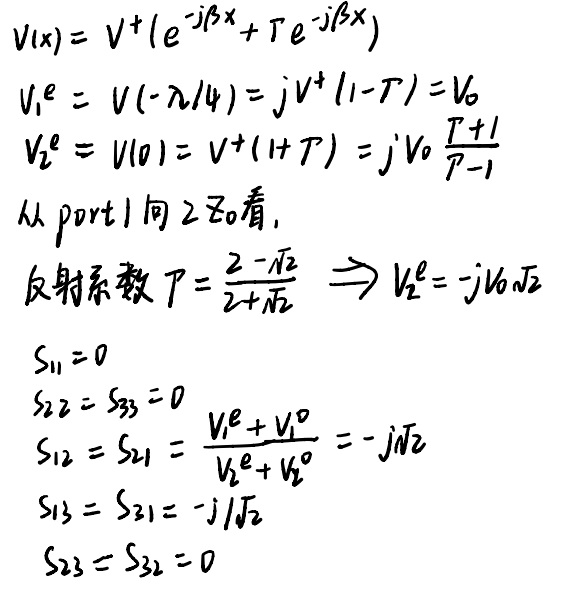 V(x) = V⁺(e^{-jβx} + Γe^{-jβx})
V₁ᵉ = V(-λ/4) = jV⁺(1-Γ) = V₀
V₂ᵉ = V(0) = V⁺(1+Γ) = jV₀ \frac{Γ+1}{Γ-1}
从port1向2Z₀看,
反射系数 Γ = \frac{2-√2}{2+√2} ⇒ V₂ᵉ = -jV₀√2
S₁₁ = 0
S₂₂ = S₃₃ = 0
S₁₂ = S₂₁ = \frac{V₁ᵉ + V₁⁰}{V₂ᵉ + V₂⁰} = -j√2
S₁₃ = S₃₁ = -j/√2
S₂₃ = S₃₂ = 0